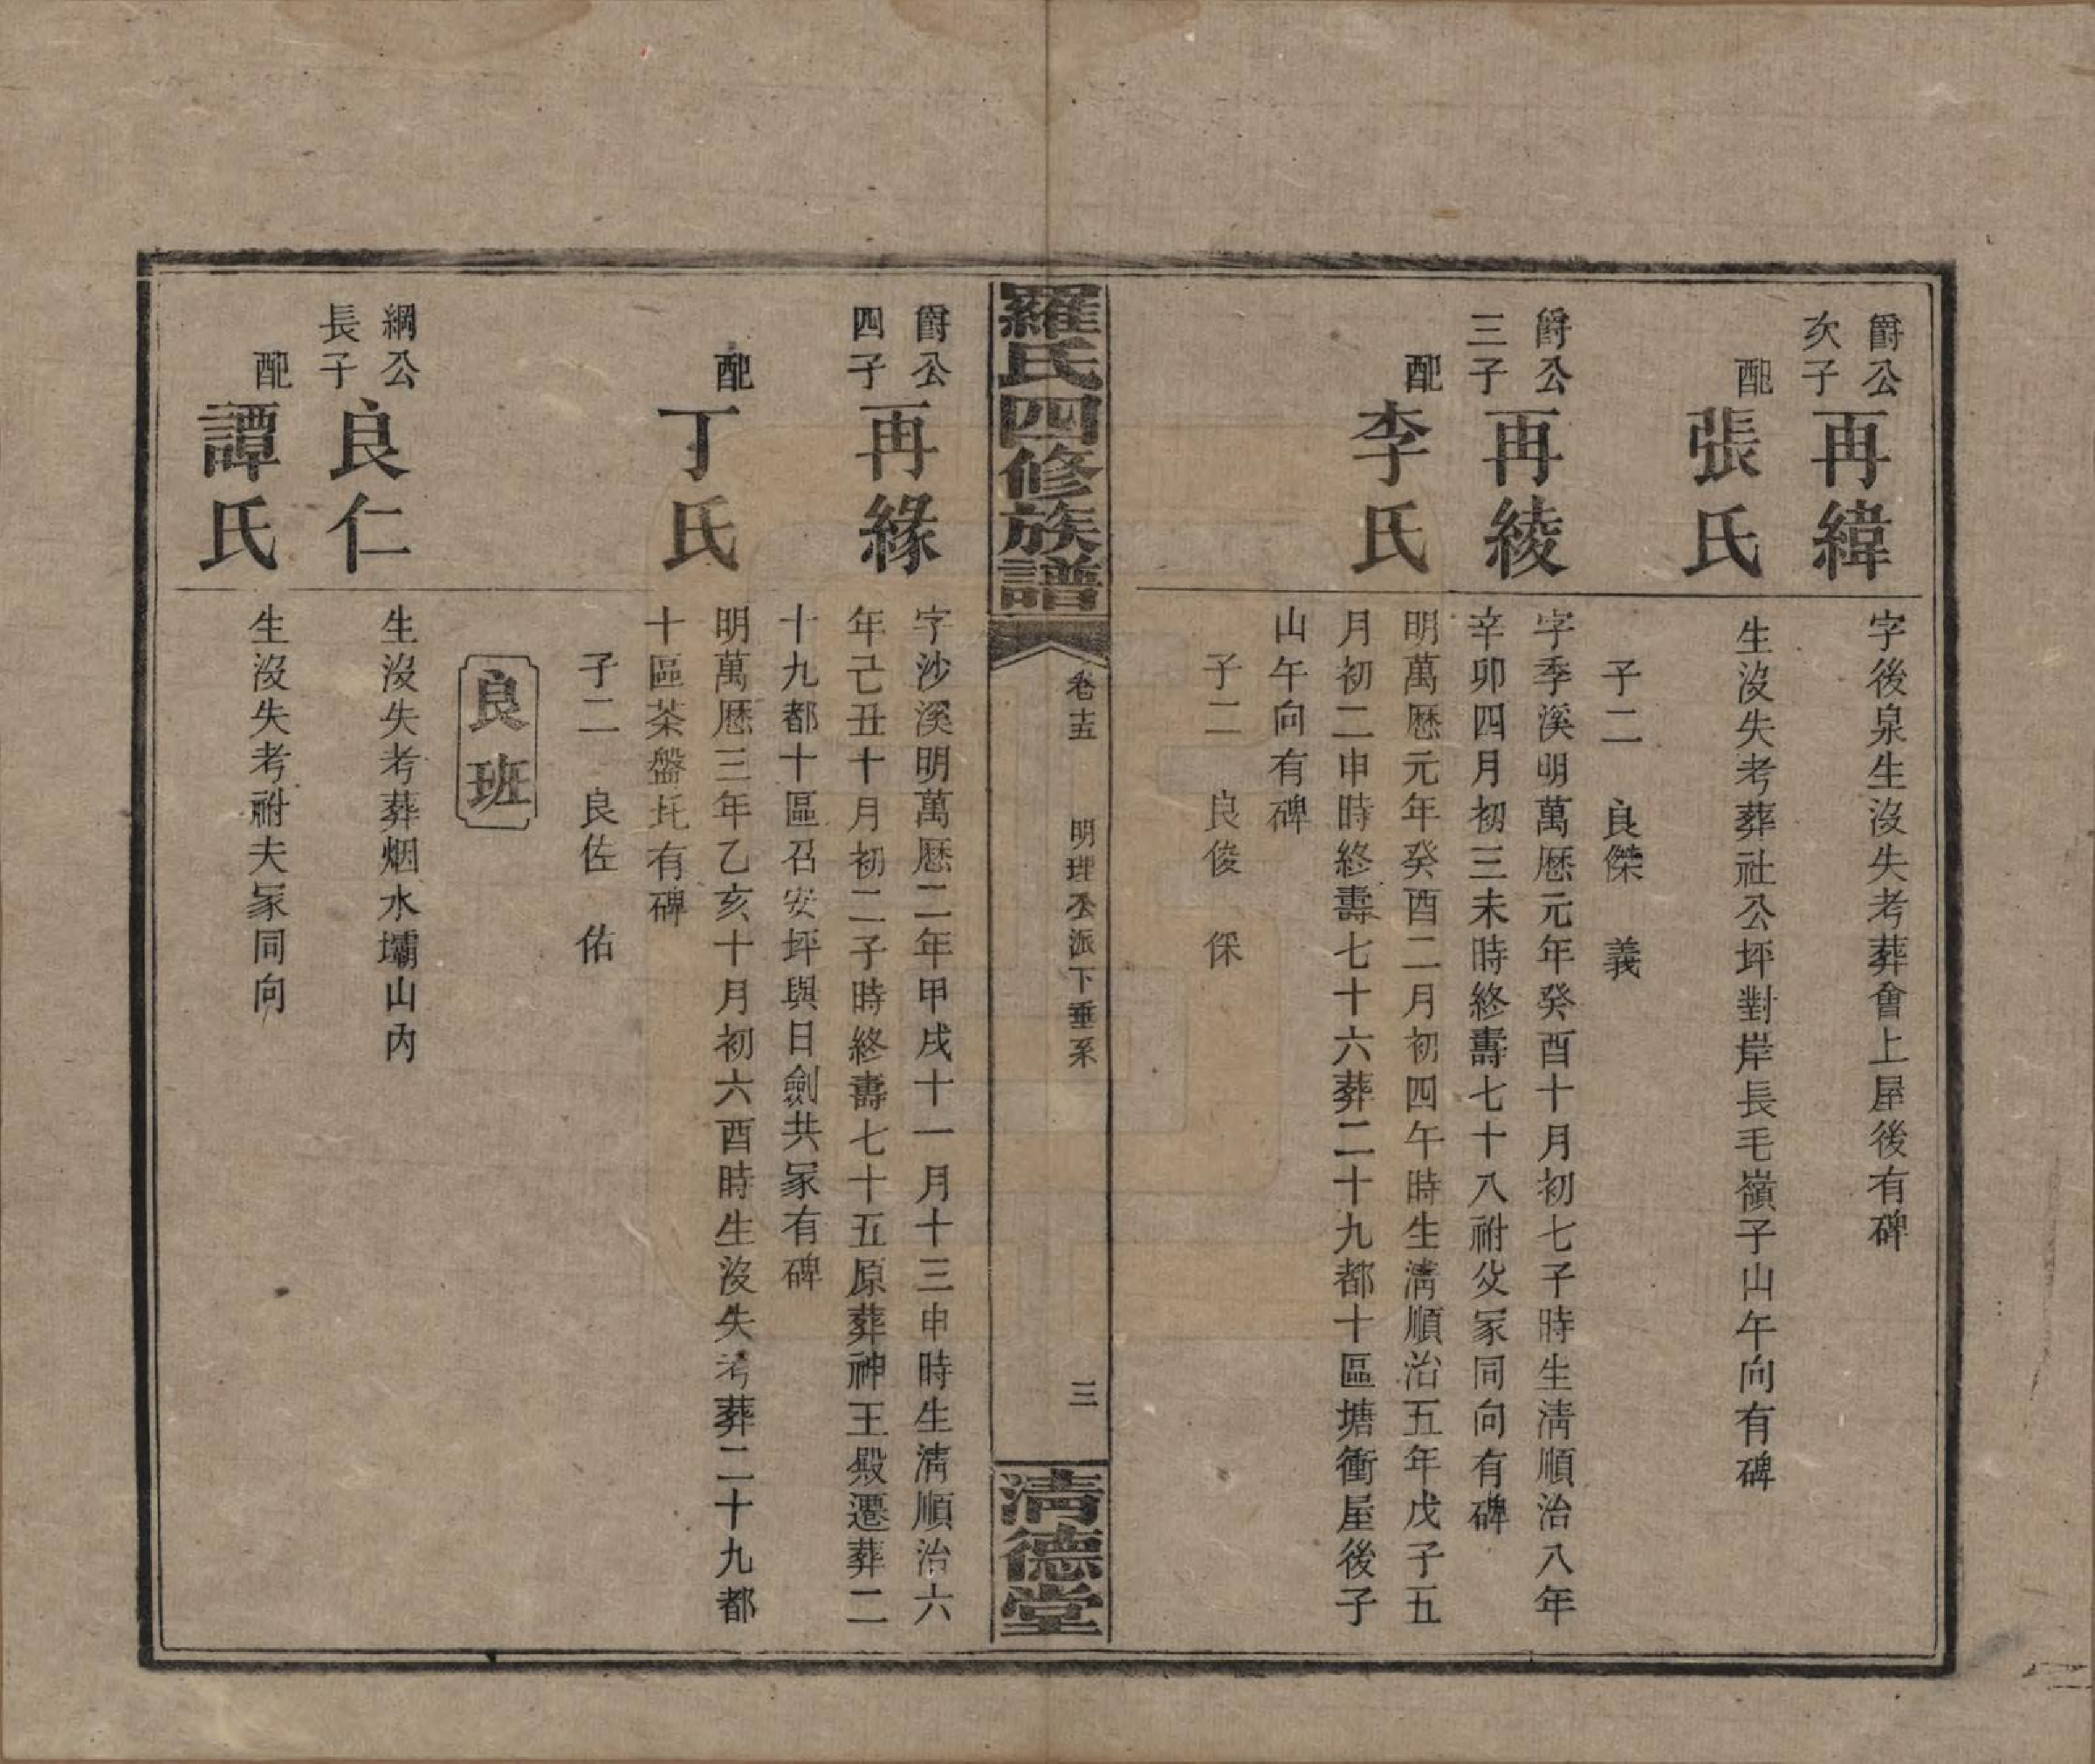 爵公
次子
再緯
字後泉生沒失考葬會上屋後有碑
配
張氏
生沒失考葬社公坪對岸長毛嶺子山午向有碑
子二　良傑　義
爵公
三子
再綾
字季溪明萬歷元年癸酉十月初七子時生淸順治八年
辛卯四月初三未時終壽七十八祔父冢同向有碑
配
李氏
明萬歷元年癸酉二月初四午時生淸順治五年戊子五
月初二申時終壽七十六葬二十九都十區塘衝屋後子
山午向有碑
子二　良俊　保
羅氏四修族譜
卷十五
明理公派下垂系
三
淸德堂
爵公
四子
再緣
字沙溪明萬歷二年甲戌十一月十三申時生淸順治六
年己丑十月初二子時終壽七十五原葬神王殿遷葬二
十九都十區召安坪與日劍共冢有碑
配
丁氏
明萬歷三年乙亥十月初六酉時生沒失考葬二十九都
十區茶盤圫有碑
子二　良佐　佑
良班
綱公
長子
良仁
生沒失考葬烟水壩山內
配
譚氏
生沒失考祔夫冢同向